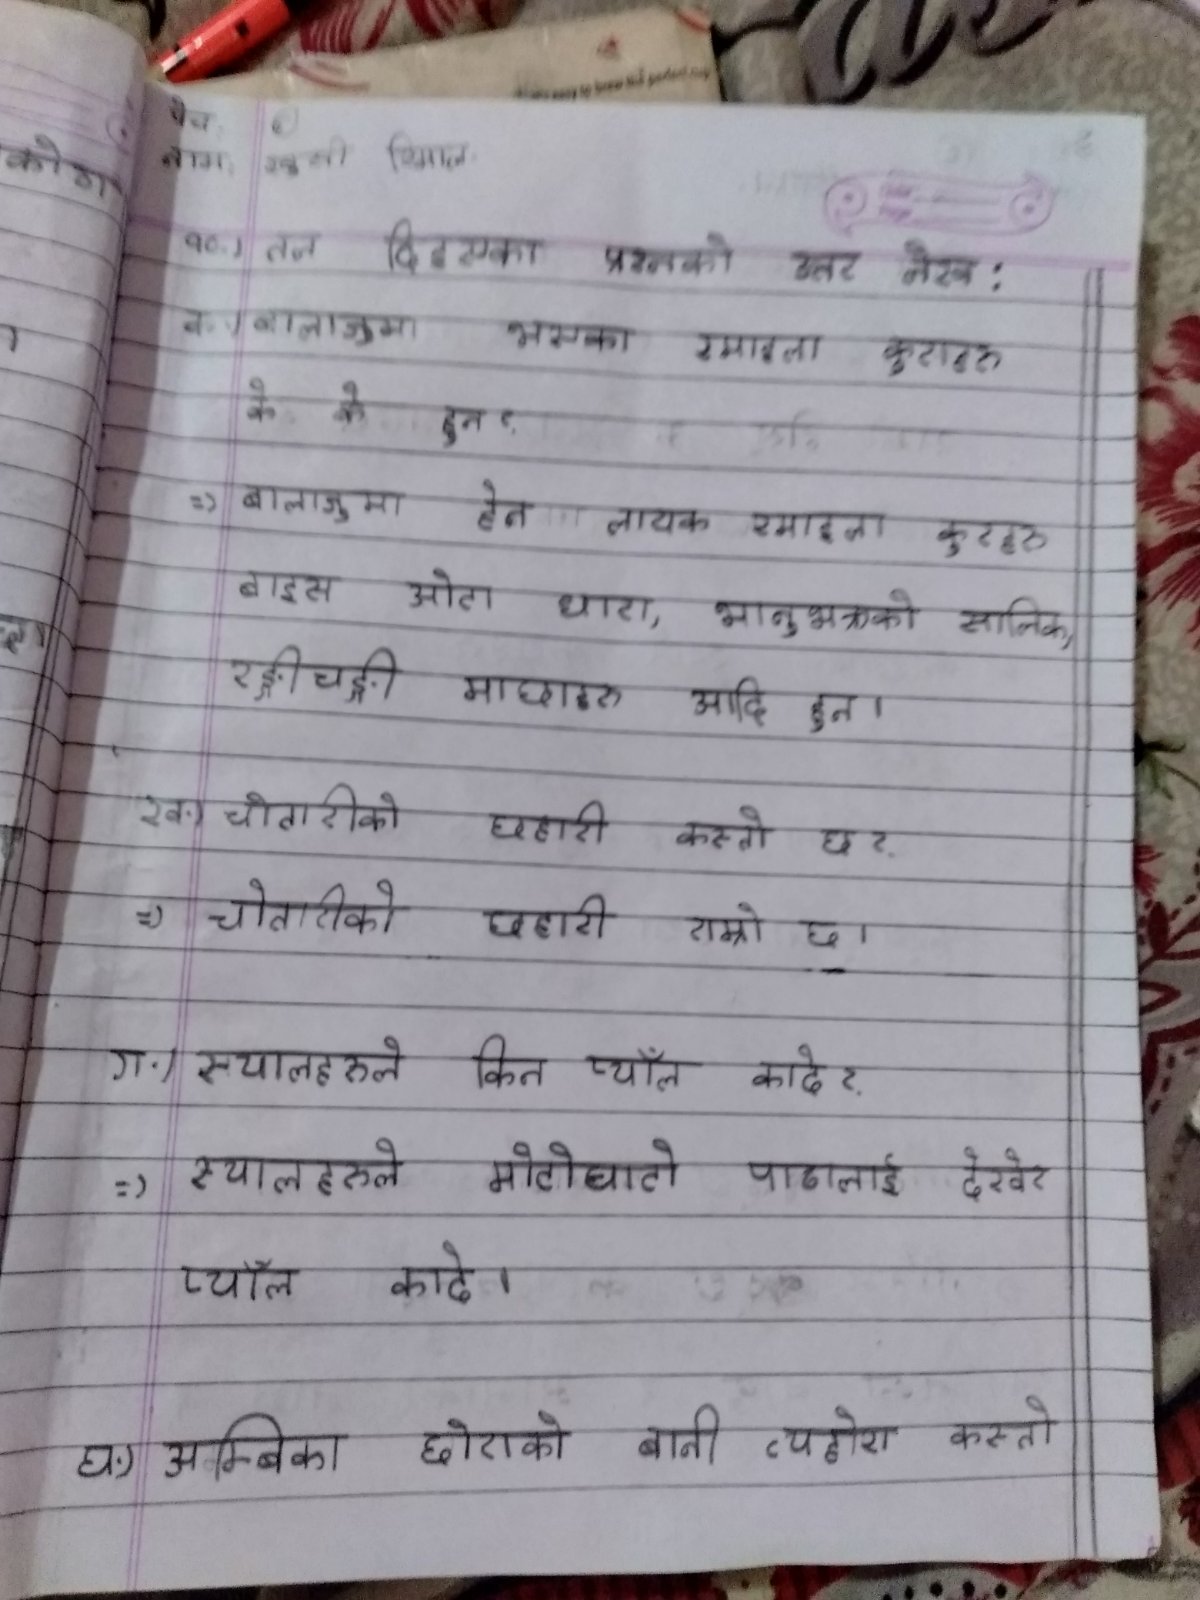 नाम:
१०.) तल दिइएका प्रश्नको उत्तर लेख :
क.) बालाजुमा भएका रमाइला कुराहरु
के के हुन ?
=) बालाजुमा हेर्न लायक रमाइला कुरहरु
बाइस ओटा धारा, भानुभक्तको सालिक,
रङ्गीचङ्गी माछाहरु आदि हुन ।
ख.) चौतारीको छहारी कस्तो छ ?
=) चौतारीको छहारी राम्रो छ ।
ग.) स्यालहरुले किन प्याँल काढे ?
=) स्यालहरुले मोटोघाटो पाठालाई देखेर
प्याँल काढे ।
घ.) अम्बिका छोराको बानी व्यहोरा कस्तो